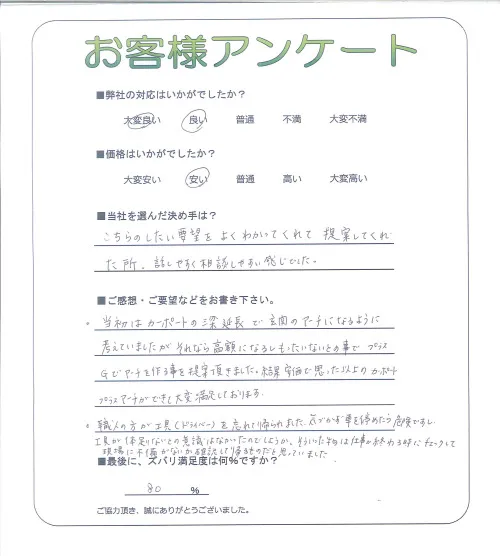 お客様アンケート
■弊社の対応はいかがでしたか？
大変良い 良い 普通 不満 大変不満
■価格はいかがでしたか？
大変安い 安い 普通 高い 大変高い
■当社を選んだ決め手は？
こちらのしたい要望をよくわかってくれて 提案してくれ
た所、話しやすく相談しやすい感じでした。
■ご感想・ご要望などをお書き下さい。
当初はカーポートの梁延長で玄関のアーチになるように
考えていましたがそれなら高額になるしもったいないとの事でプラス
Gでアーチを作る事を提案頂きました。結果安価で思った以上のカーポート
プラスアーチができて大変満足しております。
職人の方が工具(ドライバー)を忘れて帰られました。気づかず車を停めたら危険ですし、
工具が1本足りないとの意識はなかったのでしょうか。そういった物は仕事が終わる時にチェックして
現場に不備がないか確認して帰るものだと思っていました
■最後に、ズバリ満足度は何%ですか？
80 %
ご協力頂き、誠にありがとうございました。